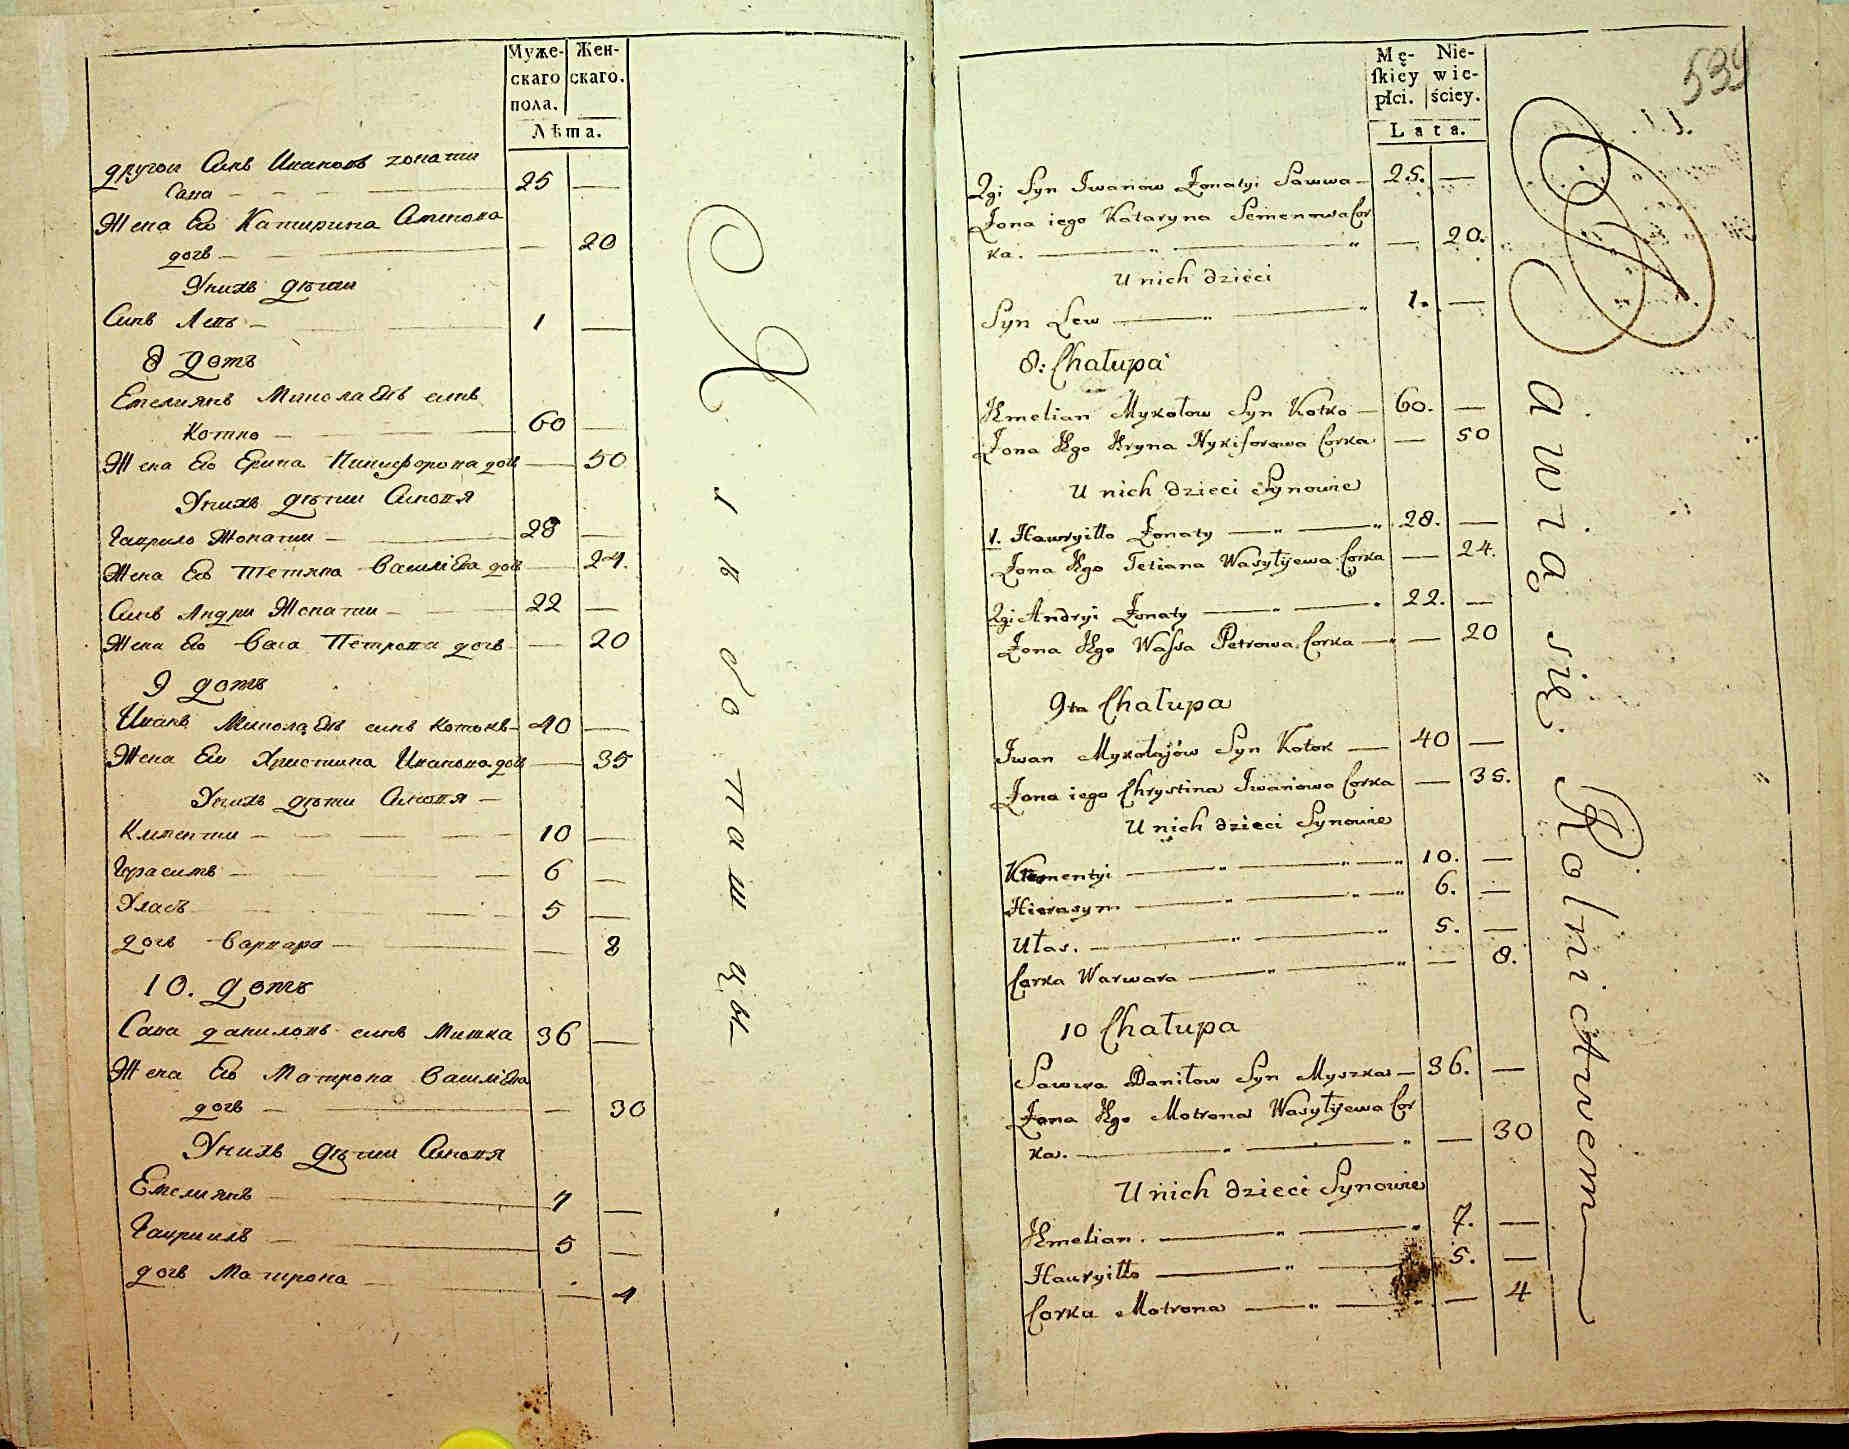 Муже-
скаго
пола.
Жен-
скаго.
Лѣта.
другои Синъ Ивановъ жонатии
Сава 25
Жена Его Катирина Семенова
дочъ 20
Унихъ дѣти
Синъ Левъ 1
8 Домъ
Емелиянъ Миколаевъ синъ
Котко 60
Жена Его Ерина Никифорова дочъ 50
Унихъ дѣти Синовя
Гаврило Жонатии 28
Жена Его Тетяна Василіева дочъ 24.
Синъ Андри Жонатии 22
Жена Его Васа Петрова дочъ 20
9 домъ
Иванъ Миколаевъ синъ Котокъ 40
Жена Его Христина Иванова дочъ 35
Унихъ дѣти Синовя
Климентии 10
Герасимъ 6
Уласъ 5
дочъ Варвара 8
10. Домъ
Сава даниловъ синъ Мишка 36
Жена Его Матрона Василіева
дочъ 30
Унихъ Дѣти Синовя
Емелиянъ 7
Гавриилъ 5
дочъ Матрона 4
Хлѣбопашцы
539
Mę-
skiey
płci.
Nie-
wie-
ściey.
Lata.
2gi Syn Iwanow Żonatyi Sawwa 25.
Żona iego Kataryna Semenowa Cor
ka. 20.
U nich dzieci
Syn Lew 1.
8: Chałupa
Emelian Mykołow Syn Kotko 60.
Żona Ego Eryna Nykiforowa Corka 50
U nich dzieci Synowie
1. Hawryiłło Żonaty 28.
Żona Ego Tetiana Wasylijewa Corka 24.
2gi Andryi Żonaty 22.
Żona Ego Wassa Petrowa Corka 20
9ta Chałupa
Iwan Mykołajów Syn Kotok 40
Żona iego Chrystina Iwanowa Corka 35.
U nich dzieci Synowie
Klementyi 10.
Hierasym 6.
Ułas. 5.
Corka Warwara 8.
10 Chałupa
Sawwa Daniłow Syn Myszka 36.
Żona Ego Motrona Wasylijewa Cor
ka. 30
U nich dzieci Synowie
Emelian. 7.
Hawryiłło 5.
Corka Motrona 4
Bawią się Rolnictwem